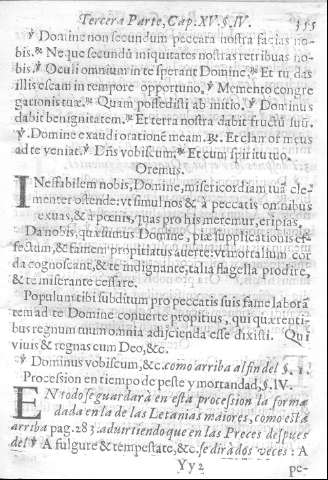 Tercera Parte, Cap. XV. §. IV. 355
℣ Domine non secundum peccata nostra facias no-
bis. ℟ Neque secundũ iniquitates nostras retribuas no-
bis. ℣ Oculi omnium in te sperant Domine. ℟ Et tu das
illis escam in tempore opportuno. ℣ Memento congre
gationis tuæ. ℟ Quam possedisti ab initio. ℣ Dominus
dabit benignitatem. ℟ Et terra nostra dabit fructũ suũ.
℣. Domine exaudi orationẽ meam. ℟. Et clamor meus
ad te veniat. ℣ Dñs vobiscum. ℟ Et cum spiritu tuo.
Oremus.
INeffabilem nobis, Domine, misericordiam tuã cle-
menter ostende: vt simul nos & à peccatis omnibus
exuas, & à pœnis, quas pro his meremur, eripias.
Da nobis, quæsumus Domine, piæ supplicationis ef-
fectum, & famem propitiatus auerte: vt mortalium cor
da cognoscant, & te indignante, talia flagella prodire,
& te miserante cessare.
Populum tibi subditum pro peccatis suis fame laborã
tem ad te Domine conuerte propitius, qui quærenti-
bus regnum tuum omnia adijcienda esse dixisti. Qui
viuis & regnas cum Deo, &c.
℣ Dominus vobiscum, &c. como arriba al fin del §. 1.
Procession en tiempo de peste y mortandad, §. IV.
EN todo se guardarà en esta procession la forma
dada en la de las Letanias maiores, como està
arriba pag. 283. aduirtiendo que en las Preces despues
del ℣ A fulgure & tempestate, &c. se dirà dos veces: A
Yy 2 pe-